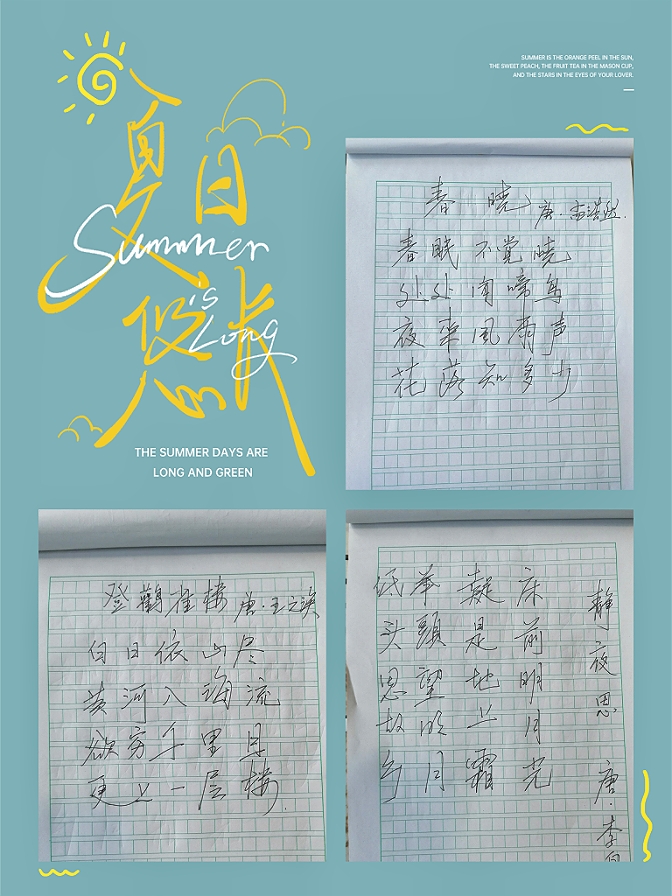 SUMMER IS THE ORANGE PEEL IN THE SUN,
THE SWEET PEACH, THE FRUIT TEA IN THE MASON CUP,
AND THE STARS IN THE EYES OF YOUR LOVER.
夏日
Summer
悠长
is
Long
THE SUMMER DAYS ARE
LONG AND GREEN
春晓 唐·孟浩然
春眠不觉晓
处处闻啼鸟
夜来风雨声
花落知多少
登觀雀楼 唐·王之涣
白日依山尽
黄河入海流
欲穷千里目
更上一层楼
静夜思 唐·李白
床前明月光
疑是地上霜
举頭望明月
低头思故乡